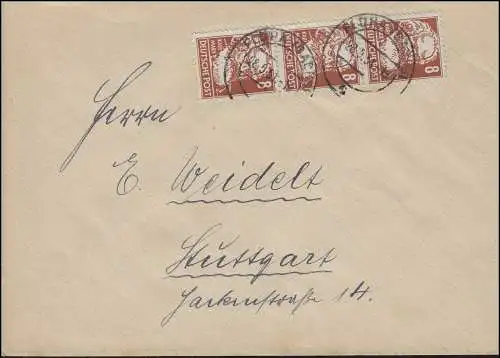 DEUTSCHE POST 8 DEUTSCHE POST 8 DEUTSCHE POST 8
Herrn
E. Weidelt
Stuttgart
Jackenstraße 14.